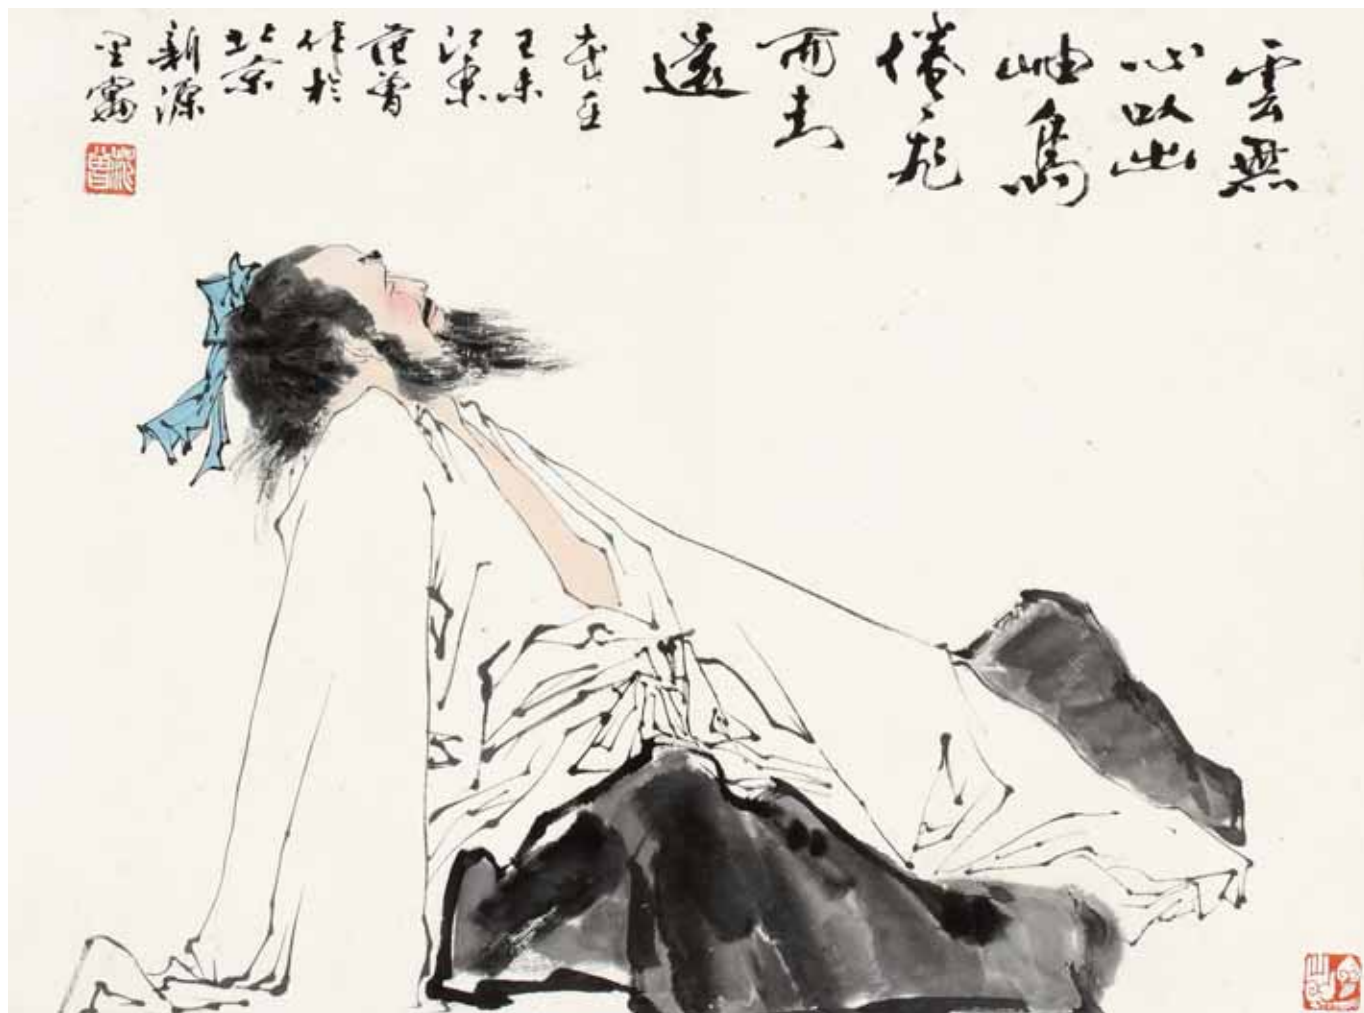 雲無
心以出
岫鳥
倦飛
而知
還
歲在
未
江東
范曾
作於
北京
新源
里寓